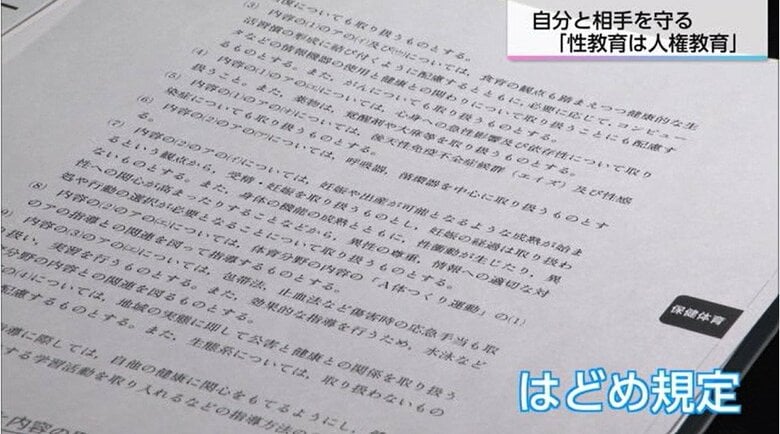 自分と相手を守る
「性教育は人権教育」
復についても取り扱うものとする。
(3) 内容の(1)のアの(イ)及び(ウ)については，食育の観点も踏まえつつ健康的な生
活習慣の形成に結び付くように配慮するとともに，必要に応じて，コンピュー
タなどの情報機器の使用と健康との関わりについて取り扱うことにも配慮す
るものとする。また，がんについても取り扱うものとする。
(4) 内容の(1)のアの(エ)については，心身への急性影響及び依存性について取り
扱うこと。また，薬物は，覚醒剤や大麻等を取り扱うものとする。
(5) 内容の(1)のアの(オ)については，後天性免疫不全症候群（エイズ）及び性感
染症についても取り扱うものとする。
(6) 内容の(2)のアの(ア)については，呼吸器，循環器を中心に取り扱うものとす
る。
(7) 内容の(2)のアの(イ)については，妊娠や出産が可能となるような成熟が始ま
るという観点から，受精・妊娠を取り扱うものとし，妊娠の経過は取り扱わ
ないものとする。また，身体の機能の成熟とともに，性衝動が生じたり，異
性への関心が高まったりすることなどから，異性の尊重，情報への適切な対
処や行動の選択が必要となることについて取り扱うものとする。
(8) 内容の(2)のアの(エ)については，体育分野の内容の「A体つくり運動」の(1)
のアの指導との関連を図って指導するものとする。
内容の(3)のアの(エ)については，包帯法，止血法など傷害時の応急手当も取
り扱い，実習を行うものとする。また，効果的な指導を行うため，水泳など
分野の内容との関連を図るものとする。
の(4)については，地域の実態に即して公害と健康との関係を取り扱う
配慮するものとする。また，生態系については，取り扱わないもの
指導に際しては，自他の健康に関心をもてるようにし，
する学習活動を取り入れるなどの指導方法の
保健体育
はどめ規定